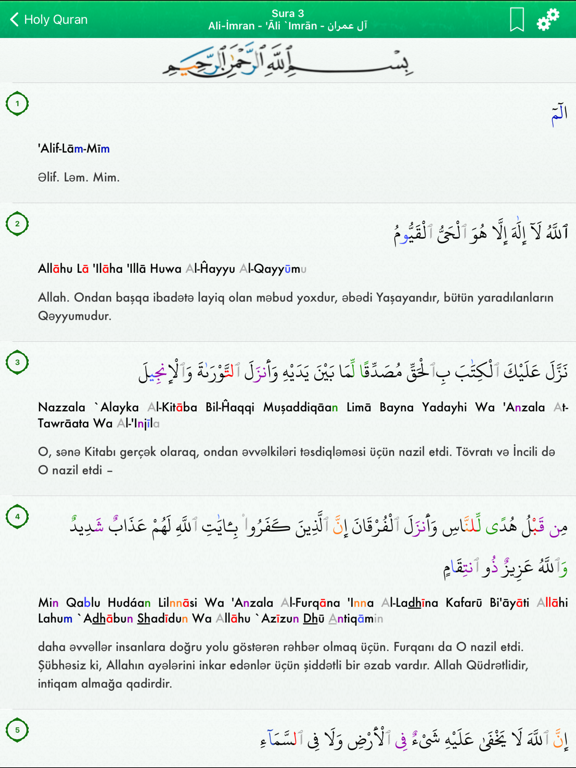 Holy Quran
Sura 3
Ali-İmran - 'Āli `Imrān - آل عمران
بِسْمِ ٱللَّهِ ٱلرَّحْمَٰنِ ٱلرَّحِيمِ
1
الٓمٓ
'Alif-Lām-Mīm
Əlif. Ləm. Mim.
2
ٱللَّهُ لَآ إِلَٰهَ إِلَّا هُوَ ٱلْحَىُّ ٱلْقَيُّومُ
Allāhu Lā 'Ilāha 'Illā Huwa Al-Ĥayyu Al-Qayyūmu
Allah. Ondan başqa ibadətə layiq olan məbud yoxdur, əbədi Yaşayandır, bütün yaradılanların
Qəyyumudur.
3
نَزَّلَ عَلَيْكَ ٱلْكِتَٰبَ بِٱلْحَقِّ مُصَدِّقًا لِّمَا بَيْنَ يَدَيْهِ وَأَنزَلَ ٱلتَّوْرَىٰةَ وَٱلْإِنجِيلَ
Nazzala `Alayka Al-Kitāba Bil-Ĥaqqi Muşaddiqāan Limā Bayna Yadayhi Wa 'Anzala At-
Tawrāata Wa Al-'Injīla
O, sənə Kitabı gerçək olaraq, ondan əvvəlkiləri təsdiqləməsi üçün nazil etdi. Tövratı və İncili də
O nazil etdi –
4
مِن قَبْلُ هُدًى لِّلنَّاسِ وَأَنزَلَ ٱلْفُرْقَانَ إِنَّ ٱلَّذِينَ كَفَرُوا۟ بِـَٔايَٰتِ ٱللَّهِ لَهُمْ عَذَابٌ شَدِيدٌ
وَٱللَّهُ عَزِيزٌ ذُو ٱنتِقَامٍ
Min Qablu Hudáan Lilnnāsi Wa 'Anzala Al-Furqāna 'Inna Al-Ladhīna Kafarū Bi'āyāti Allāhi
Lahum `Adhābun Shadīdun Wa Allāhu `Azīzun Dhū Antiqāmin
daha əvvəllər insanlara doğru yolu göstərən rəhbər olmaq üçün. Furqanı da O nazil etdi.
Şübhəsiz ki, Allahın ayələrini inkar edənlər üçün şiddətli bir əzab vardır. Allah Qüdrətlidir,
intiqam almağa qadirdir.
5
إِنَّ ٱللَّهَ لَا يَخْفَىٰ عَلَيْهِ شَىْءٌ فِى ٱلْأَرْضِ وَلَا فِى ٱلسَّمَآءِ